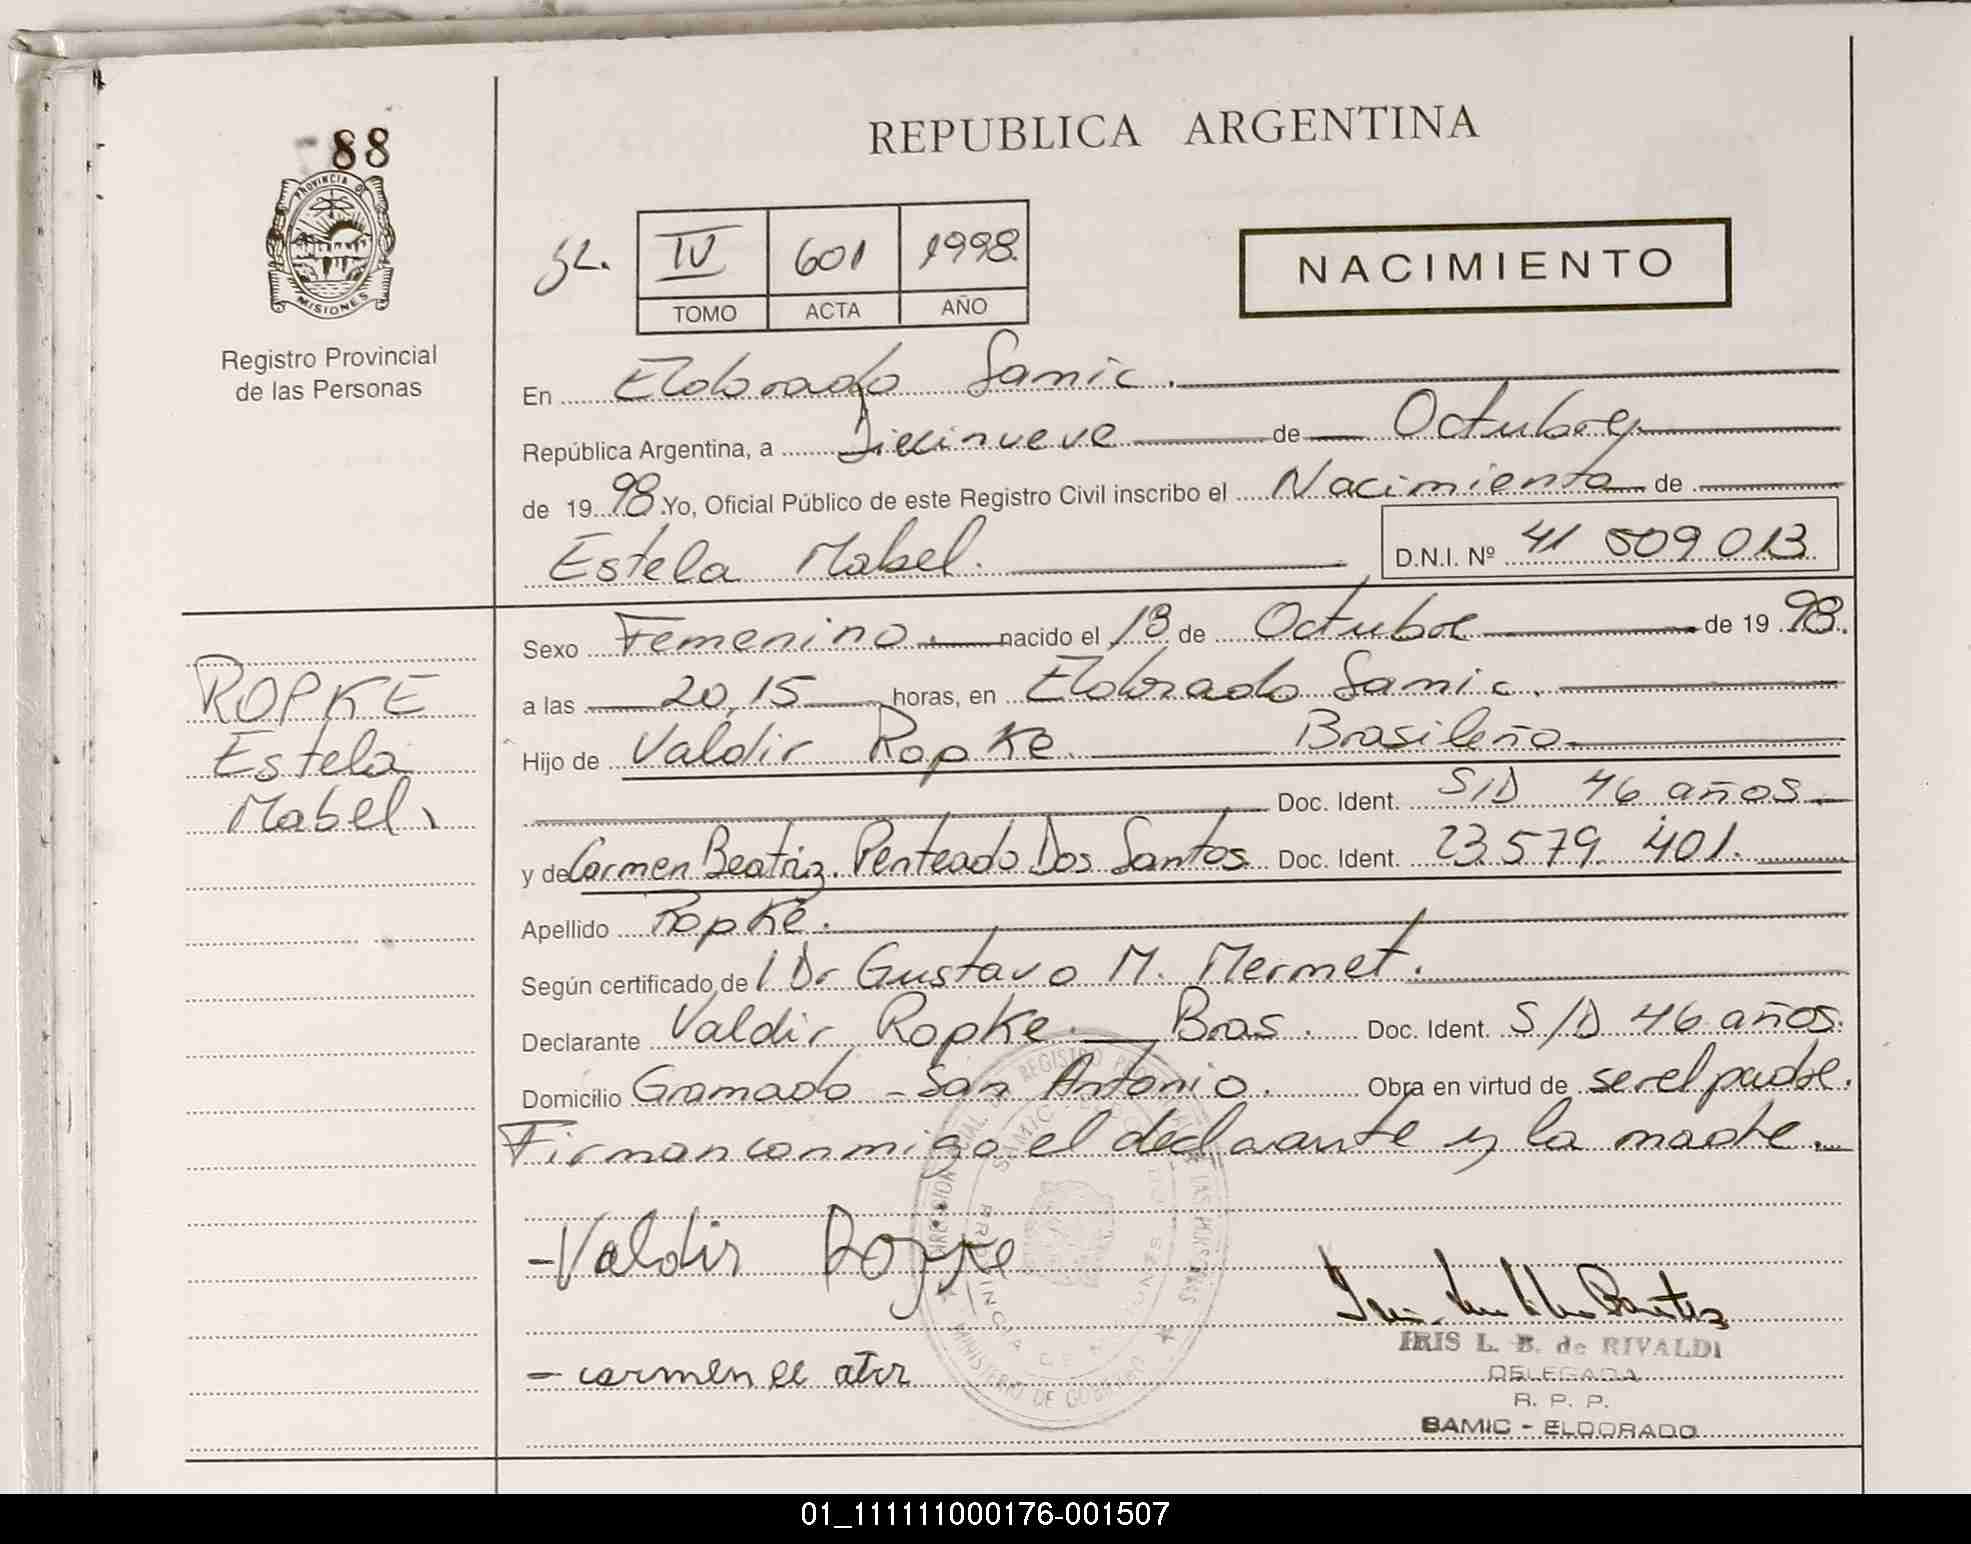 88
PROVINCIA DE
MISIONES
Registro Provincial
de las Personas
REPUBLICA ARGENTINA
IV 601 1998.
TOMO ACTA AÑO
NACIMIENTO
En Eldorado Samic.
República Argentina, a Diecinueve de Octubre
de 19 98 Yo, Oficial Público de este Registro Civil inscribo el Nacimiento de
Estela Mabel. D.N.I. Nº 41 509 013
Sexo Femenino. nacido el 13 de Octubre de 19 98.
a las 20,15 horas, en Eldorado Samic.
Hijo de Valdir Ropke. Brasileño.
Doc. Ident. S/D 46 años.
y de Carmen Beatriz. Penteado Dos Santos Doc. Ident. 23.579.401.
Apellido Ropke.
Según certificado de l Dr Gustavo M. Mermet.
Declarante Valdir Ropke. Bras. Doc. Ident. S/D 46 años.
Domicilio Gramado - San Antonio. Obra en virtud de ser el padre.
Firman conmigo el declarante y la madre.
ROPKE
Estela
Mabel.
- Valdir Ropke
- carmen
IRIS L. B. de RIVALDI
DELEGADA
R. P. P.
SAMIC - ELDORADO
01_111111000176-001507